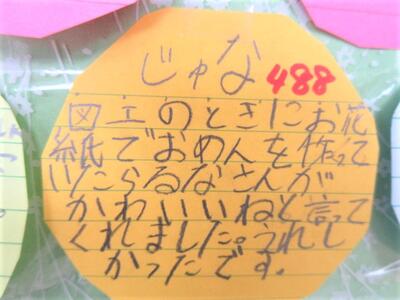 じゅな 488
図工のときにお花
紙でおめんを作って
いたらるなさんが
かわいいねと言って
くれました。うれし
かったです。